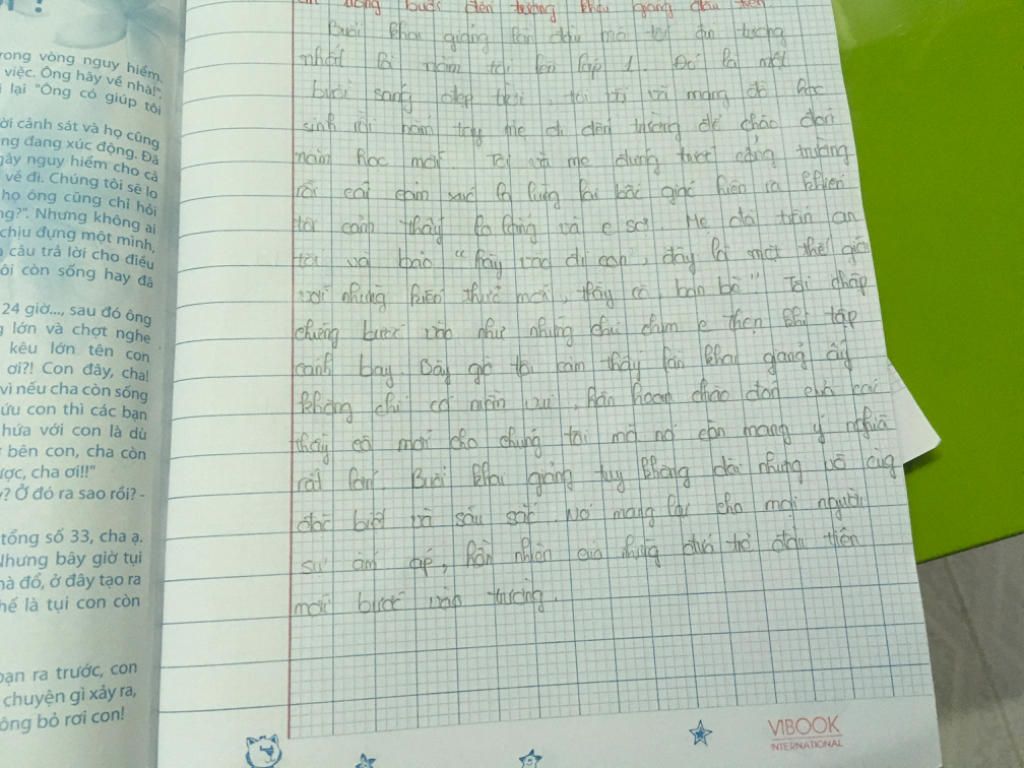 rong vòng nguy hiểm.
việc. Ông hãy về nhà!".
lại "Ông có giúp tôi
ời cảnh sát và họ cũng
ng đang xúc động. Đã
gây nguy hiểm cho cả
về đi. Chúng tôi sẽ lo
họ ông cũng chỉ hỏi
ng?". Nhưng không ai
chịu đựng một mình,
câu trả lời cho điều
ôi còn sống hay đã
24 giờ..., sau đó ông
lớn và chợt nghe
kêu lớn tên con
ơi?! Con đây, cha!
vì nếu cha còn sống
ứu con thì các bạn
hứa với con là dù
bên con, cha còn
ược, cha ơi!!"
? Ở đó ra sao rồi? -
tổng số 33, cha ạ.
Nhưng bây giờ tụi
hà đổ, ở đây tạo ra
hế là tụi con còn
bạn ra trước, con
chuyện gì xảy ra,
ông bỏ rơi con!
buổi đến trường khai giảng đầu tiên
Buổi khai giảng lần đầu mà tôi ấn tượng
nhất là năm tôi lên lớp 1. Đó là một
buổi sáng đẹp trời, tôi và mang đồ học
sinh rồi nắm tay mẹ đi đến trường để chào đón
năm học mới. Tôi và mẹ đứng trước cổng trường
rồi cái cảm xúc lạ lùng lại bất giác hiện ra khiến
tôi cảm thấy lo lắng và e sợ. Mẹ đã trấn an
tôi và bảo "hãy vào đi con, đây là một thế giới
với những kiến thức mới, thầy cô, bạn bè" Tôi chập
chững bước vào như những chú chim e thẹn khi tập
cánh bay. Bây giờ tôi cảm thấy lần khai giảng ấy
không chỉ có niềm vui, hân hoan chào đón của các
thầy cô mới cho chúng tôi mà nó còn mang ý nghĩa
rất lớn. Buổi khai giảng tuy không dài nhưng vô cùg
đặc biệt và sâu sắc. Nó mang lại cho mọi người
sự ấm áp, hồn nhiên của những đứa trẻ đầu tiên
mới bước vào trường.
VIBOOK
INTERNATIONAL